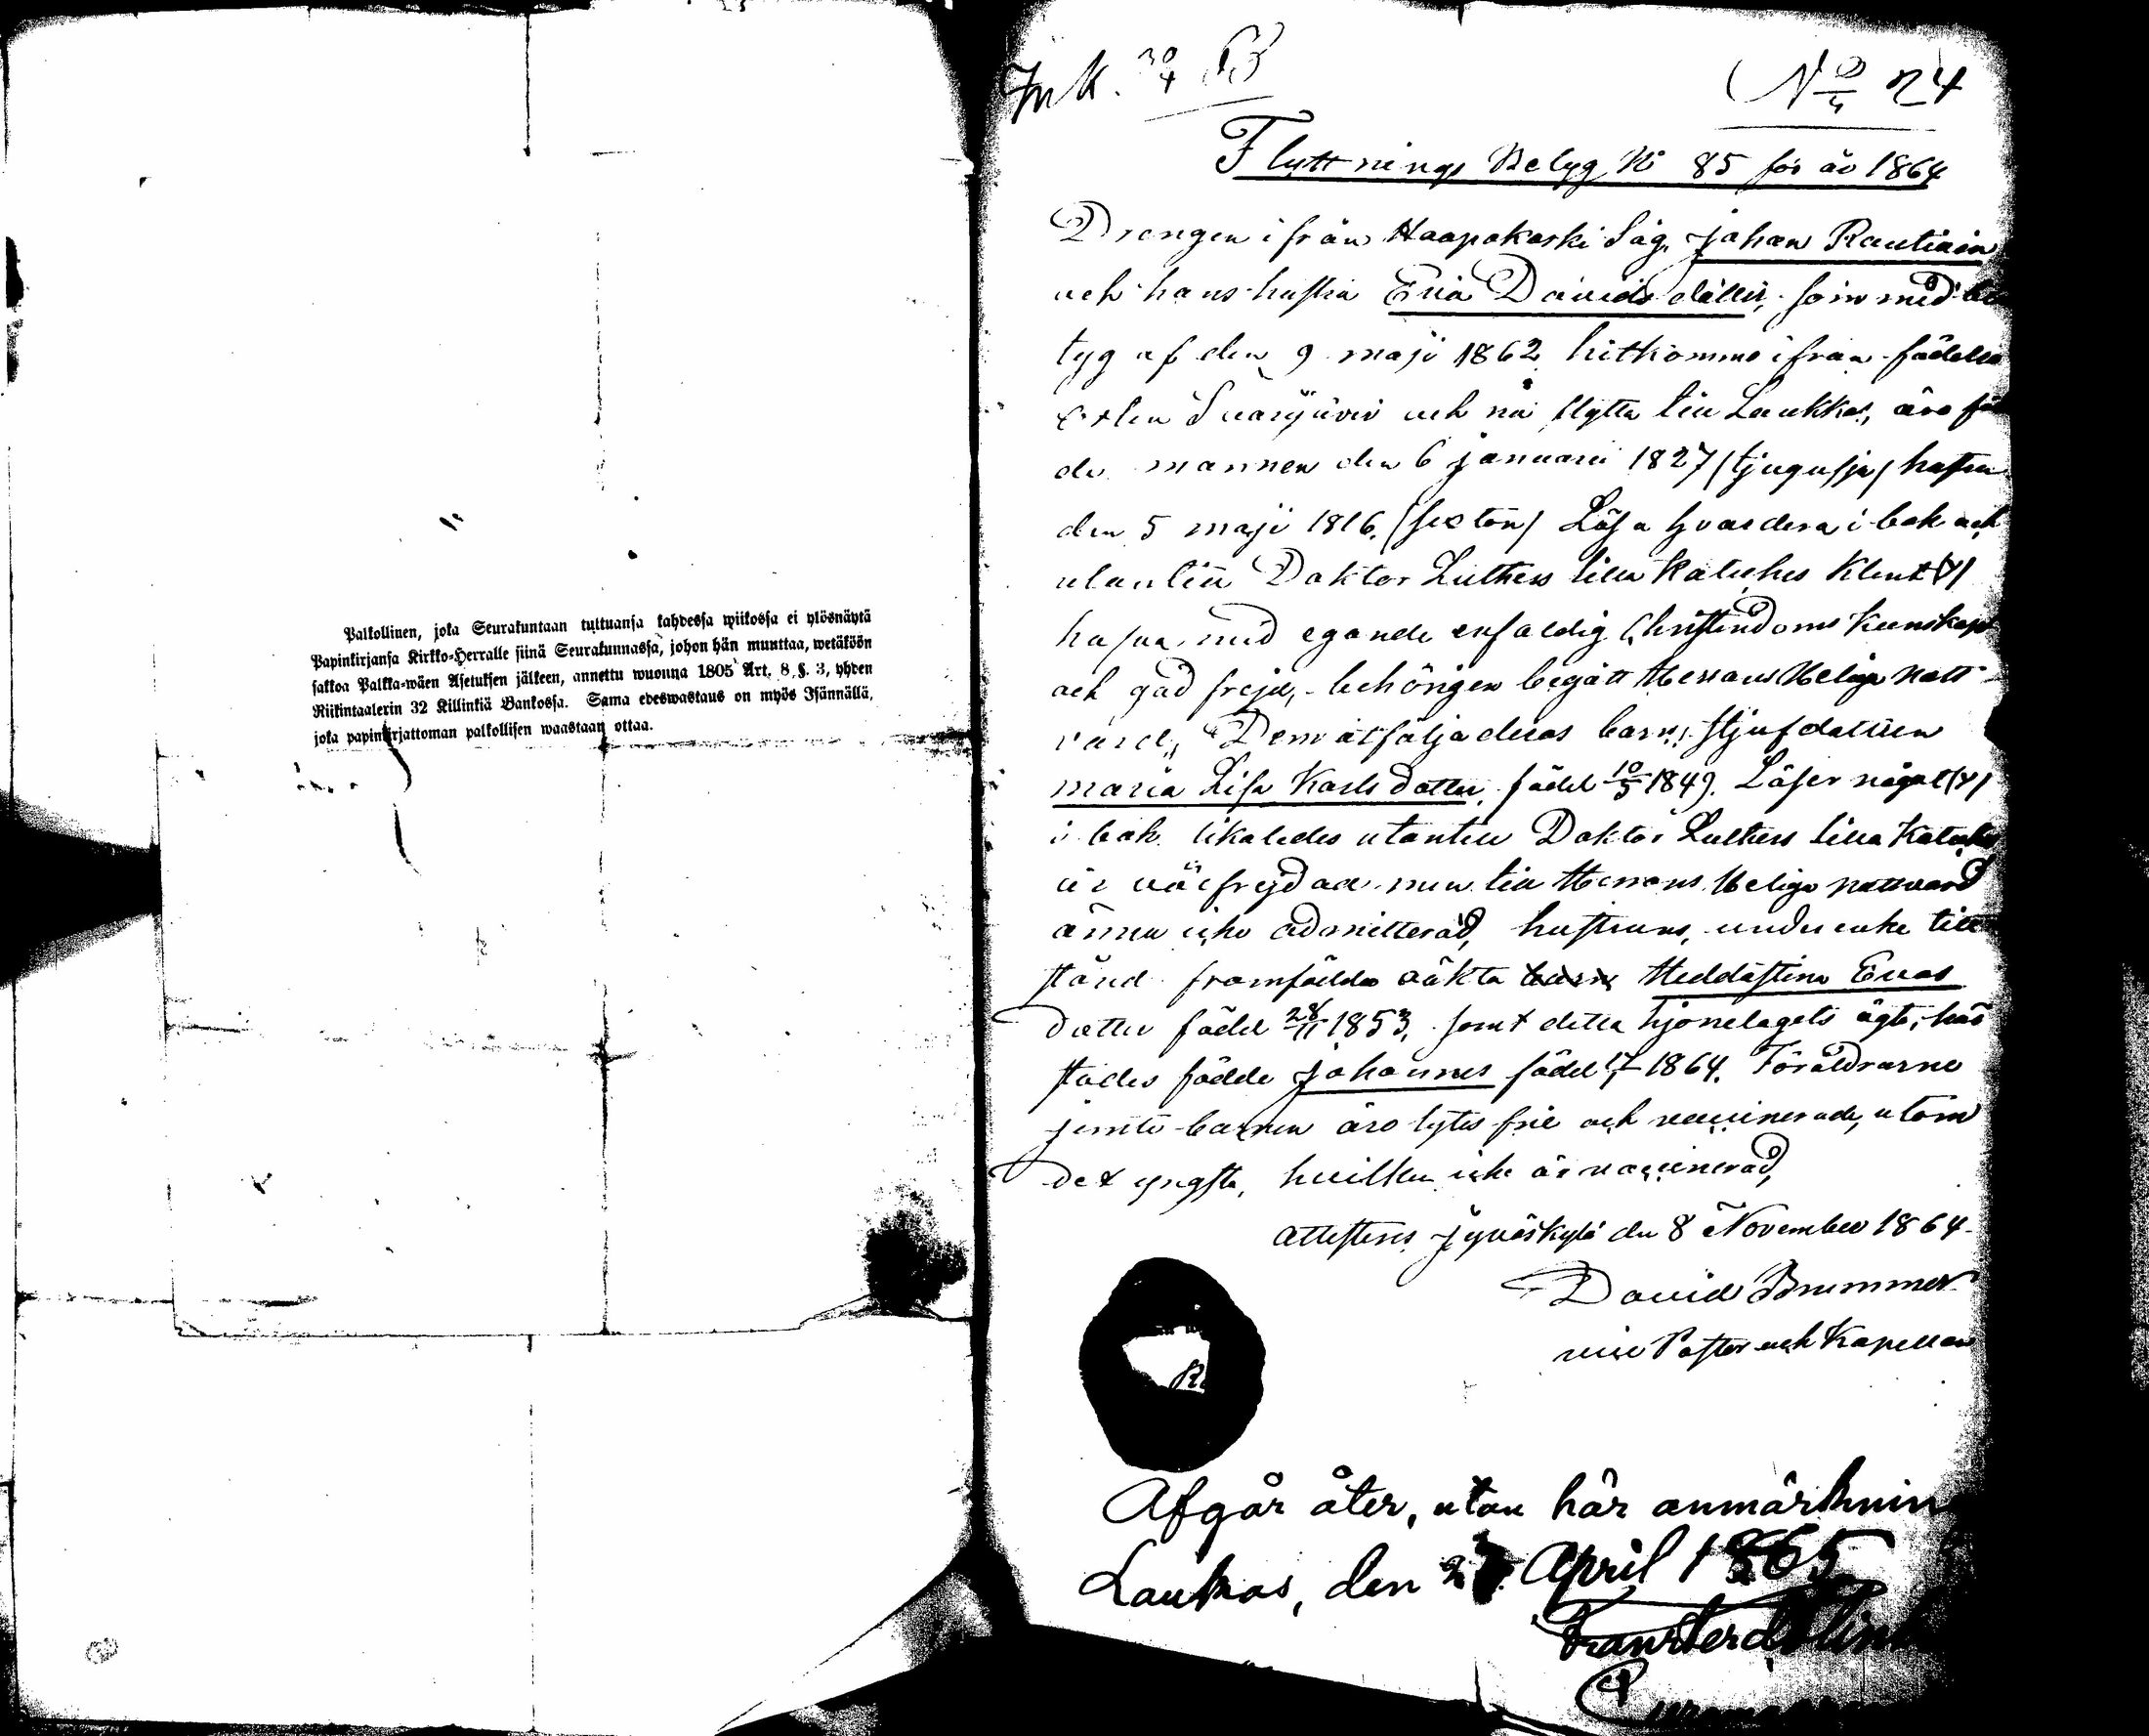 Palkollinen, joka Seurakuntaan tultuansa kahdessa wiikossa ei ylösnäytä
Papinkirjansa Kirkko-Herralle siinä Seurakunnassa, johon hän muuttaa, wetäköön
sakkoa Palkka-wäen Asetuksen jälkeen, annettu wuonna 1805 Art. 8 §. 3, yhden
Riikintaalerin 32 Killinkiä Bankossa. Sama edeswastaus on myös Isännällä,
joka papinkirjattoman palkollisen waastaan ottaa.
Ink. 30/4 65
No 24
Flyttnings Belyg No 85 för år 1864
Drengen ifrån Haapakoski Såg, Johan Rautiain
och hans hustru Eva Davidsdotter, som med be
tyg af den 9 maji 1862 hitkommo ifrån födelse
orten Saarijärvi och nu flytta till Laukkas, äro föd
de mannen den 6 januarii 1827 (tjugusju) hustrun
den 5 maji 1816. (sexton) Läsa hvardera i bok och
utantill Doktor Luthers lilla Kateches klent (v)
hafva med egande enfaldig Christendoms kunskap
och god frejd, behörigen begått Herrans Heliga natt-
vard, Dem åtfölja deras barn, styfdottren
Maria Lisa Karlsdotter, född 10/5 1849. Läser något (v)
i bok likaledes utantill Doktor Luthers lilla Kateches
är välfrejdad men till Herrans Heliga nattvard
ännu icke admitterad, hustruns, under enke till
stånd framfödda oäkta barn Heddastina Evas
dotter född 28/11 1853, samt detta hjonelagets ägta, här
städes födde Johannes född 1864. Föräldrarne
jemte barnen äro lytes frie och vaccinerade, utom
det yngsta, hvilken icke är vaccinerad,
Attesteras Jyväskylä den 8 November 1864.
David Brummer
vice Pastor och Kapellan
Afgår åter, utan här anmärknin
Laukas, den April 1865